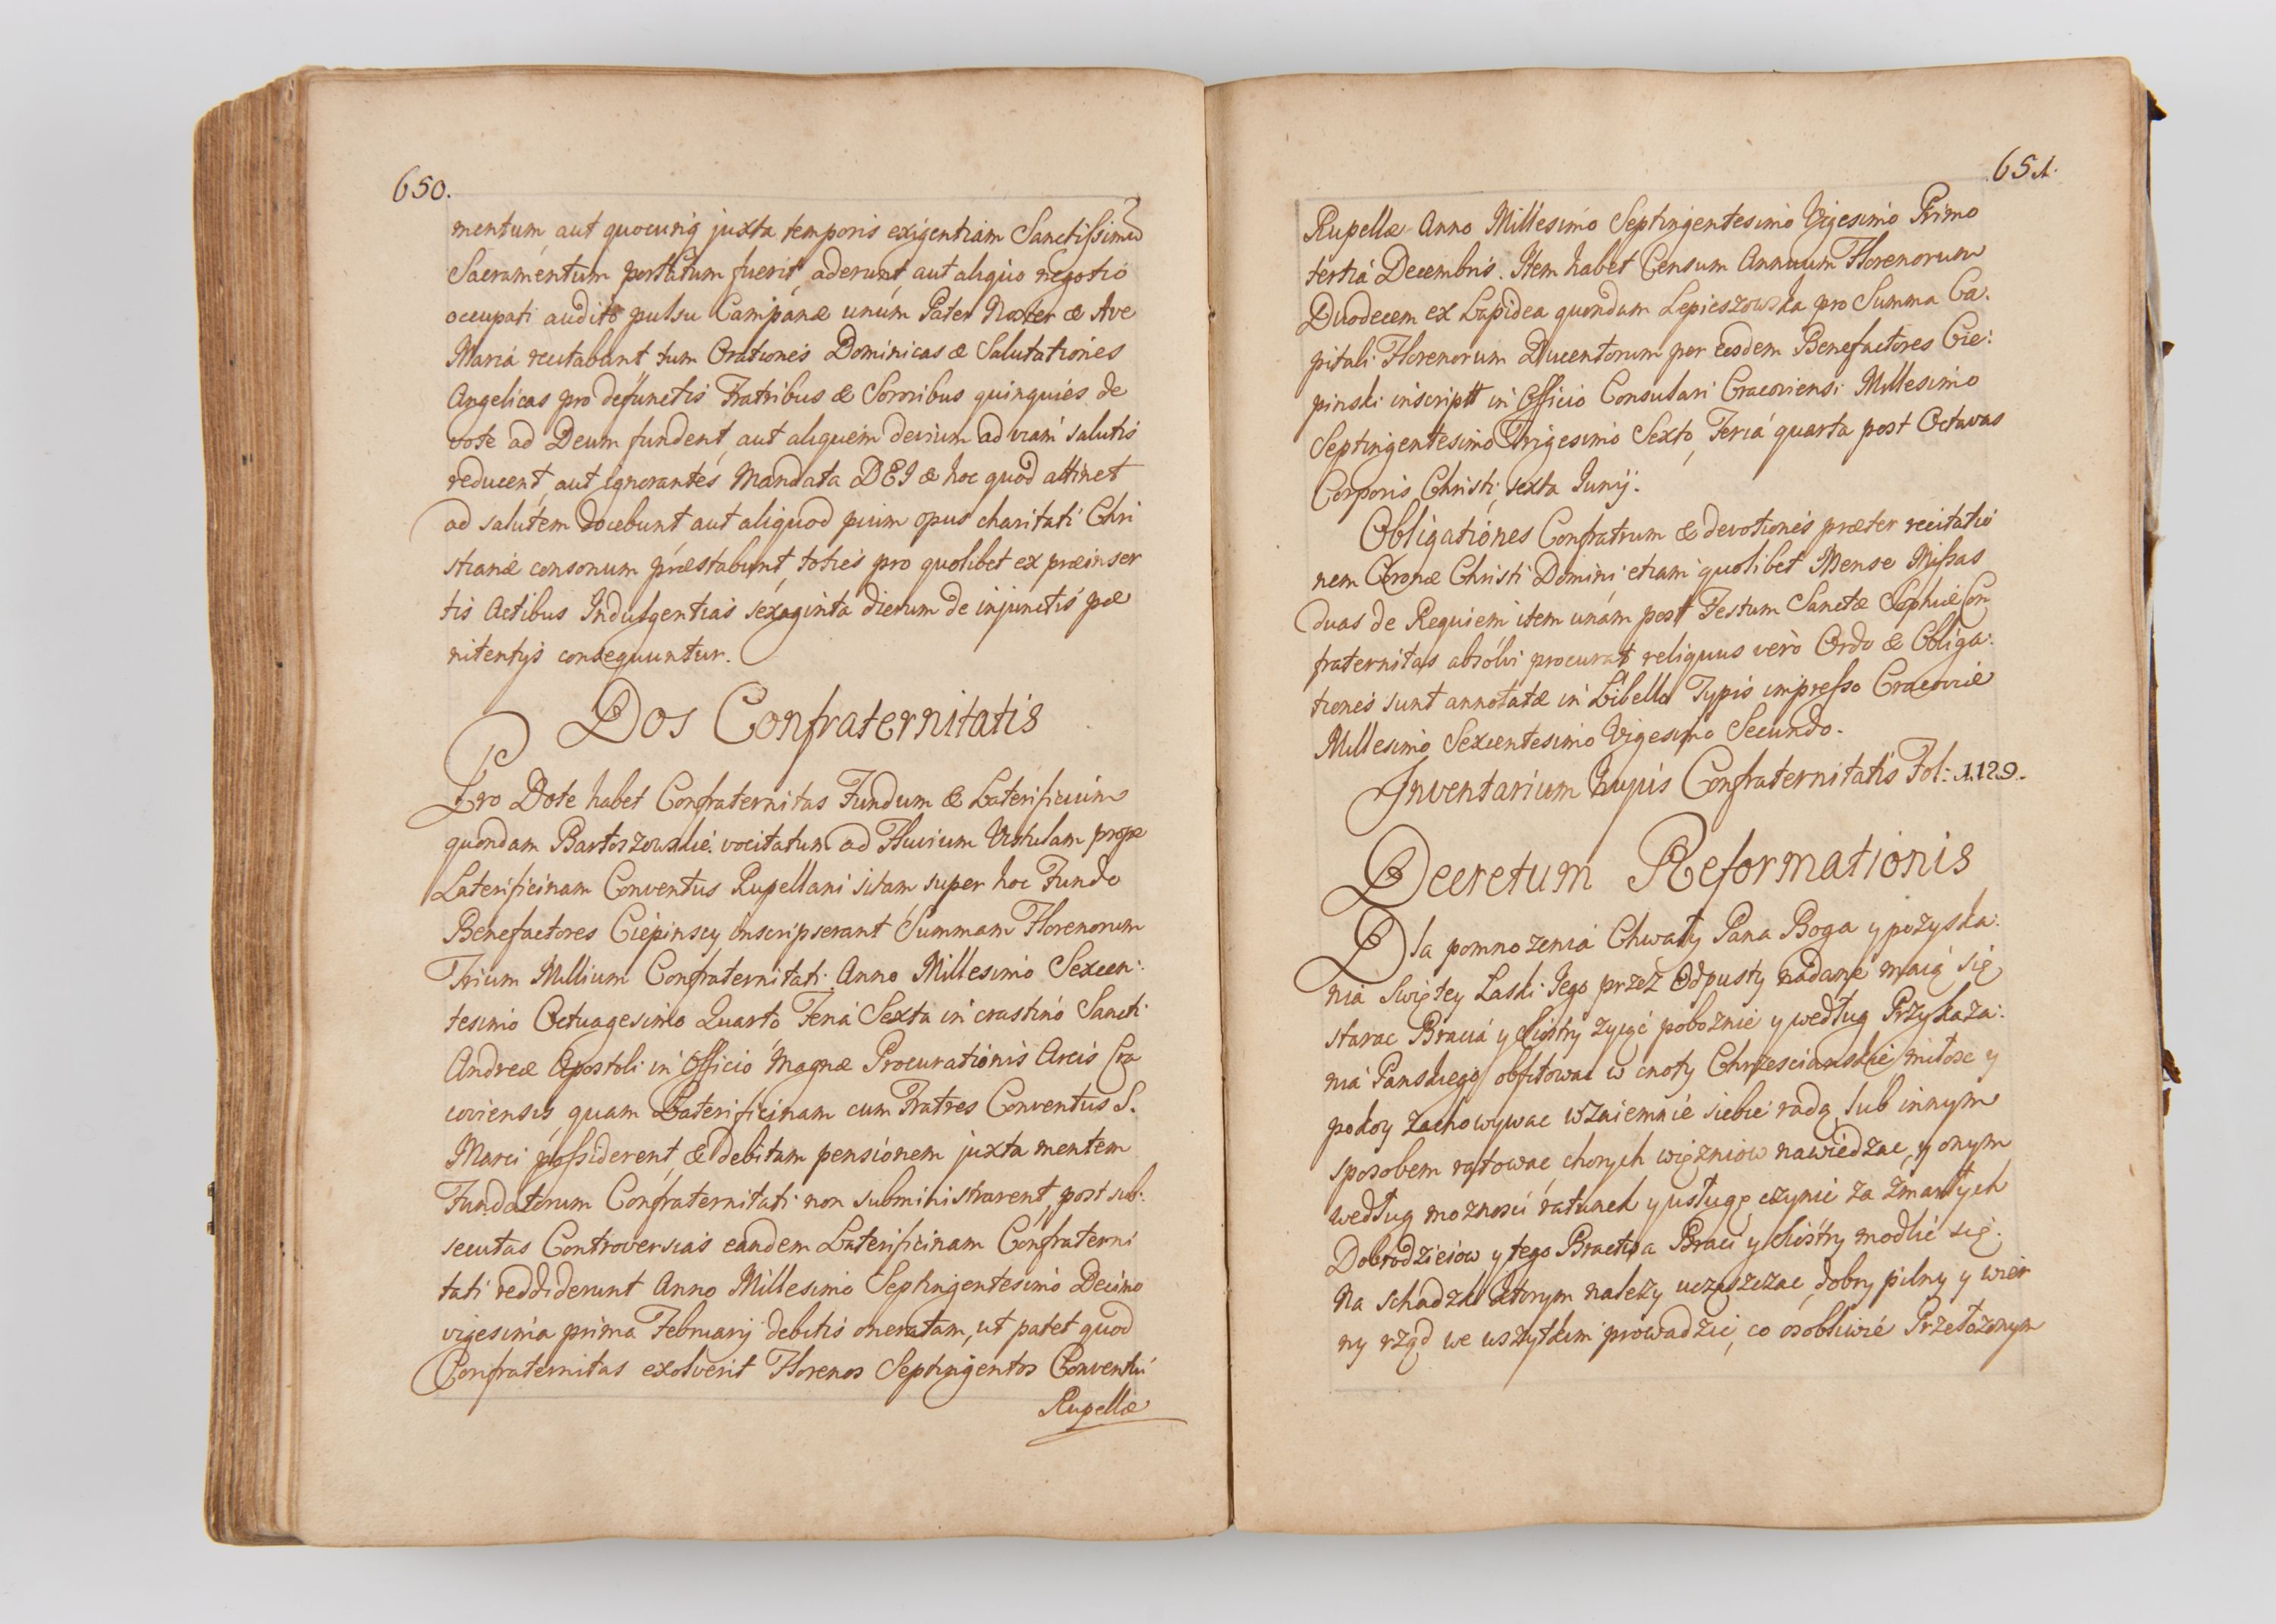 650.
mentum, aut quocunq juxta temporis exigentiam Sanctissimū
Sacramentum portatum fuerit, aderunt, aut aliquo negotio
occupati audito pulsu Campanæ unum Pater Noster & Ave
Maria recitabunt, tum Orationes Dominicas & Salutationes
Angelicas pro defunctis Fratribus & Sororibus quinquies de
vote ad Deum fundent, aut aliquem devium ad viam salutis
reducent, aut ignorantes Mandata DEI & hoc quod attinet
ad salutem docebunt, aut aliquod pium opus charitati Chri
stianæ consonum præstabunt, toties pro quolibet ex præinser
tis Actibus Indulgentias sexaginta dierum de injunctis pæ
nitentijs consequuntur.
Dos Confraternitatis
Pro Dote habet Confraternitas Fundum & Laterificium
quondam Bartoszowskie vocitatum ad Fluvium Vistulam prope
Laterificinam Conventus Rupellani sitam, super hoc Fundo
Benefactores Ciepinscy inscripserant Summam Florenorum
Trium Millium Confraternitati Anno Millesimo Sexcen:
tesimo Octuagesimo Quarto Feria Sexta in crastino Sancti
Andreæ Apostoli in Officio Magnæ Procurationis Arcis Cra
coviensis, quam Laterificinam cum Fratres Conventus S.
Marci possiderent, & debitam pensionem juxta mentem
Fundatorum Confraternitati non subministrarent, post sub:
secutas Controversias eandem Laterificinam Confraterni
tati reddiderunt Anno Millesimo Septingentesimo Decimo
vigesima prima Februarij debitis oneratam, ut patet quod
Confraternitas exolverit Florenos Septingentos Conventui
Rupellæ
651.
Rupellæ Anno Millesimo Septingentesimo Vigesimo Primo
tertia Decembris. Item habet Censum Annuum Florenorum
Duodecem ex Lapidea quondam Lepieszowska pro Summa Ca:
pitali Florenorum Ducentorum per eosdem Benefactores Cie:
pinski inscriptt in Officio Consulari Cracoviensi Millesimo
Septingentesimo Trigesimo Sexto, Feria quarta post Octavas
Corporis Christi, sexta Junij.
Obligationes Confratrum & devotiones præter recitatio
nem Coronæ Christi Domini etiam quolibet Mense Missas
duas de Requiem item unam post Festum Sanctæ Sophiæ Con
fraternitas absolvi procurat reliquus verò Ordo & Obliga:
tiones sunt annotatæ in Libello Typis impresso Cracoviæ
Millesimo Sexcentesimo Vigesimo Secundo.
Inventarium hujus Confraternitatis Fol: 1129.
Decretum Reformationis
Dla pomnozenia Chwały Pana Boga y pozyska:
nia Swiętey Łaski Jego przez Odpusty nadane maią się
starac Bracia y Siostry zyć poboznie y według Przykaza:
nia Panskiego, obfitowac w cnoty Chrzescianskie, miłosc y
pokoy zachowywac wzaiemnie siebie radą lub innym
sposobem ratowac, chorych więzniow nawiedzac, y onym
według moznosci ratunek y usługę czynic za zmarłych
Dobrodzieiow y tego Bractwa Braci y Siostry modlic się.
Na schadzki ktorym nalezy uczęszczac, dobry pilny y wier
ny rząd we wszytkim prowadzic, co osobliwie Przełozonym